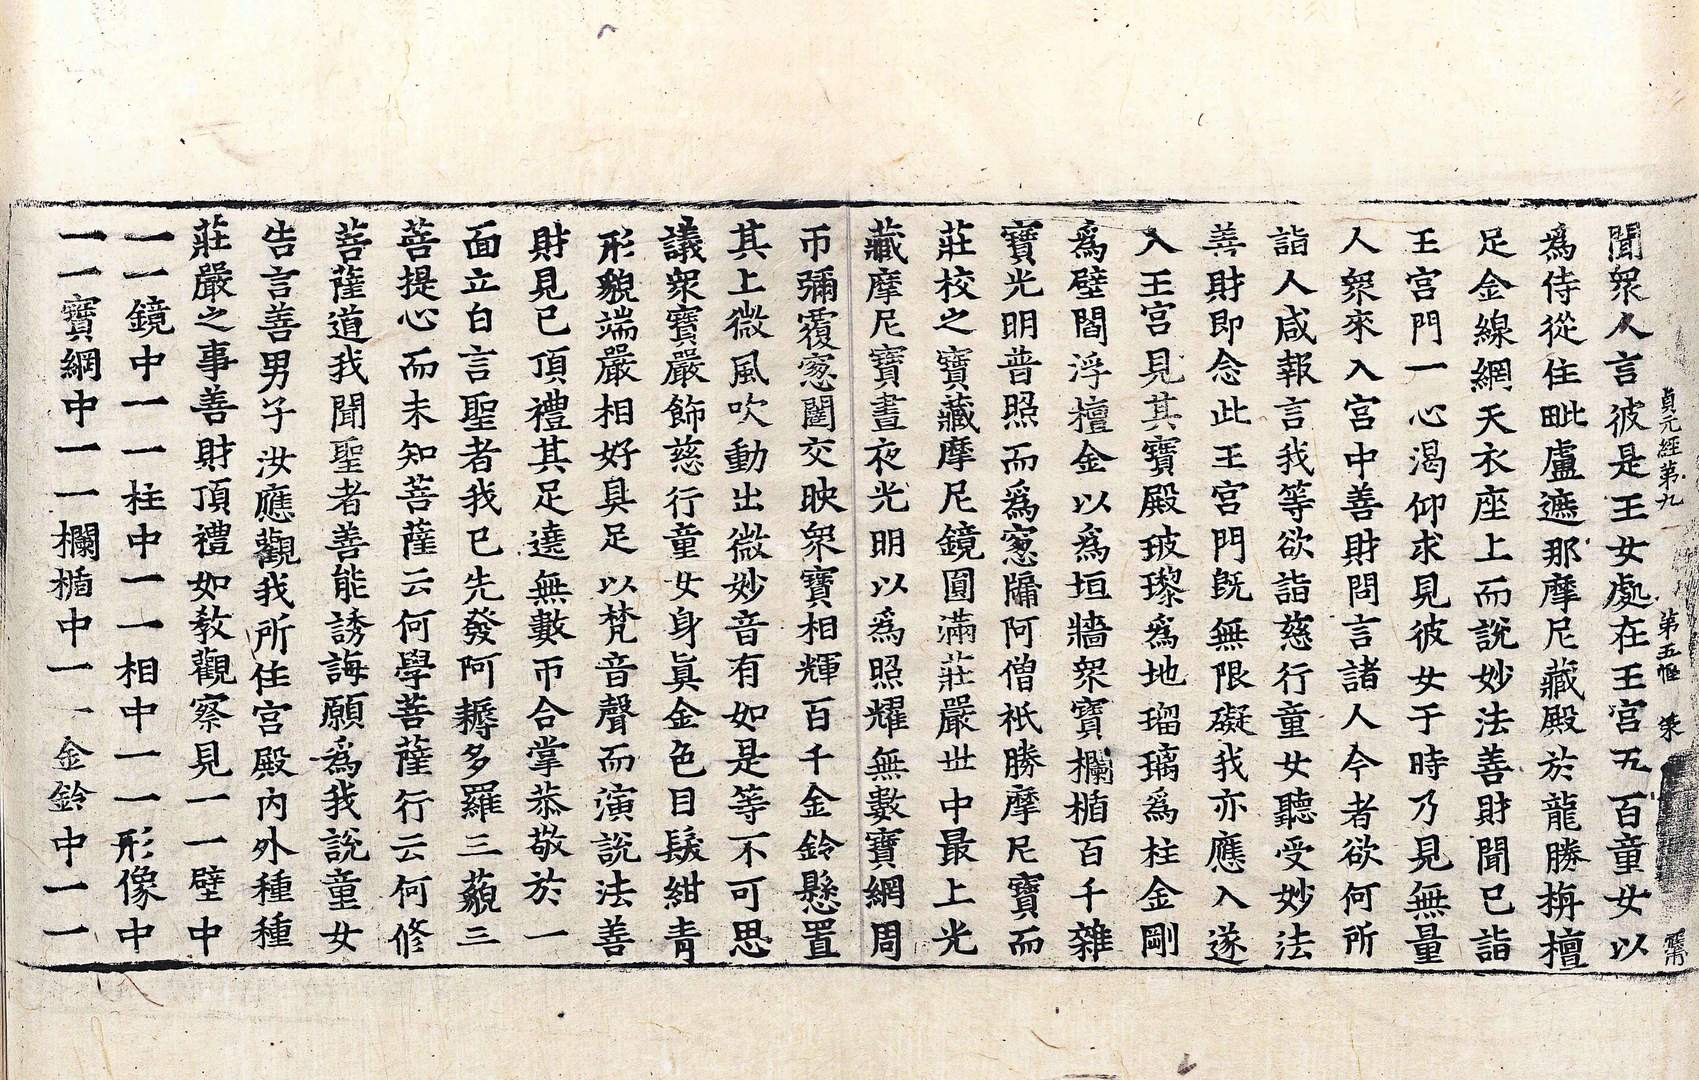 貞元經第九 第五幅 策
聞衆人言彼是王女處在王宮五百童女以
爲侍從住毗盧遮那摩尼藏殿於龍勝栴檀
足金線網天衣座上而說妙法善財聞已詣
王宮門一心渴仰求見彼女于時乃見無量
人衆來入宮中善財問言諸人今者欲何所
詣人咸報言我等欲詣慈行童女聽受妙法
善財即念此王宮門旣無限礙我亦應入遂
入王宮見其寶殿玻瓈爲地瑠璃爲柱金剛
爲壁閻浮檀金以爲垣牆衆寶欄楯百千雜
寶光明普照而爲窻牖阿僧祇勝摩尼寶而
莊校之寶藏摩尼鏡圓滿莊嚴世中最上光
藏摩尼寶晝夜光明以爲照耀無數寶網周
帀彌覆窻闥交映衆寶相輝百千金鈴懸置
其上微風吹動出微妙音有如是等不可思
議衆寶嚴飾慈行童女身眞金色目髮紺青
形貌端嚴相好具足以梵音聲而演說法善
財見已頂禮其足遶無數帀合掌恭敬於一
面立白言聖者我已先發阿耨多羅三藐三
菩提心而未知菩薩云何學菩薩行云何修
菩薩道我聞聖者善能誘誨願爲我說童女
告言善男子汝應觀我所住宮殿內外種種
莊嚴之事善財頂禮如教觀察見一一壁中
一一鏡中一一柱中一一相中一一形像中
一一寶網中一一欄楯中一一金鈴中一一